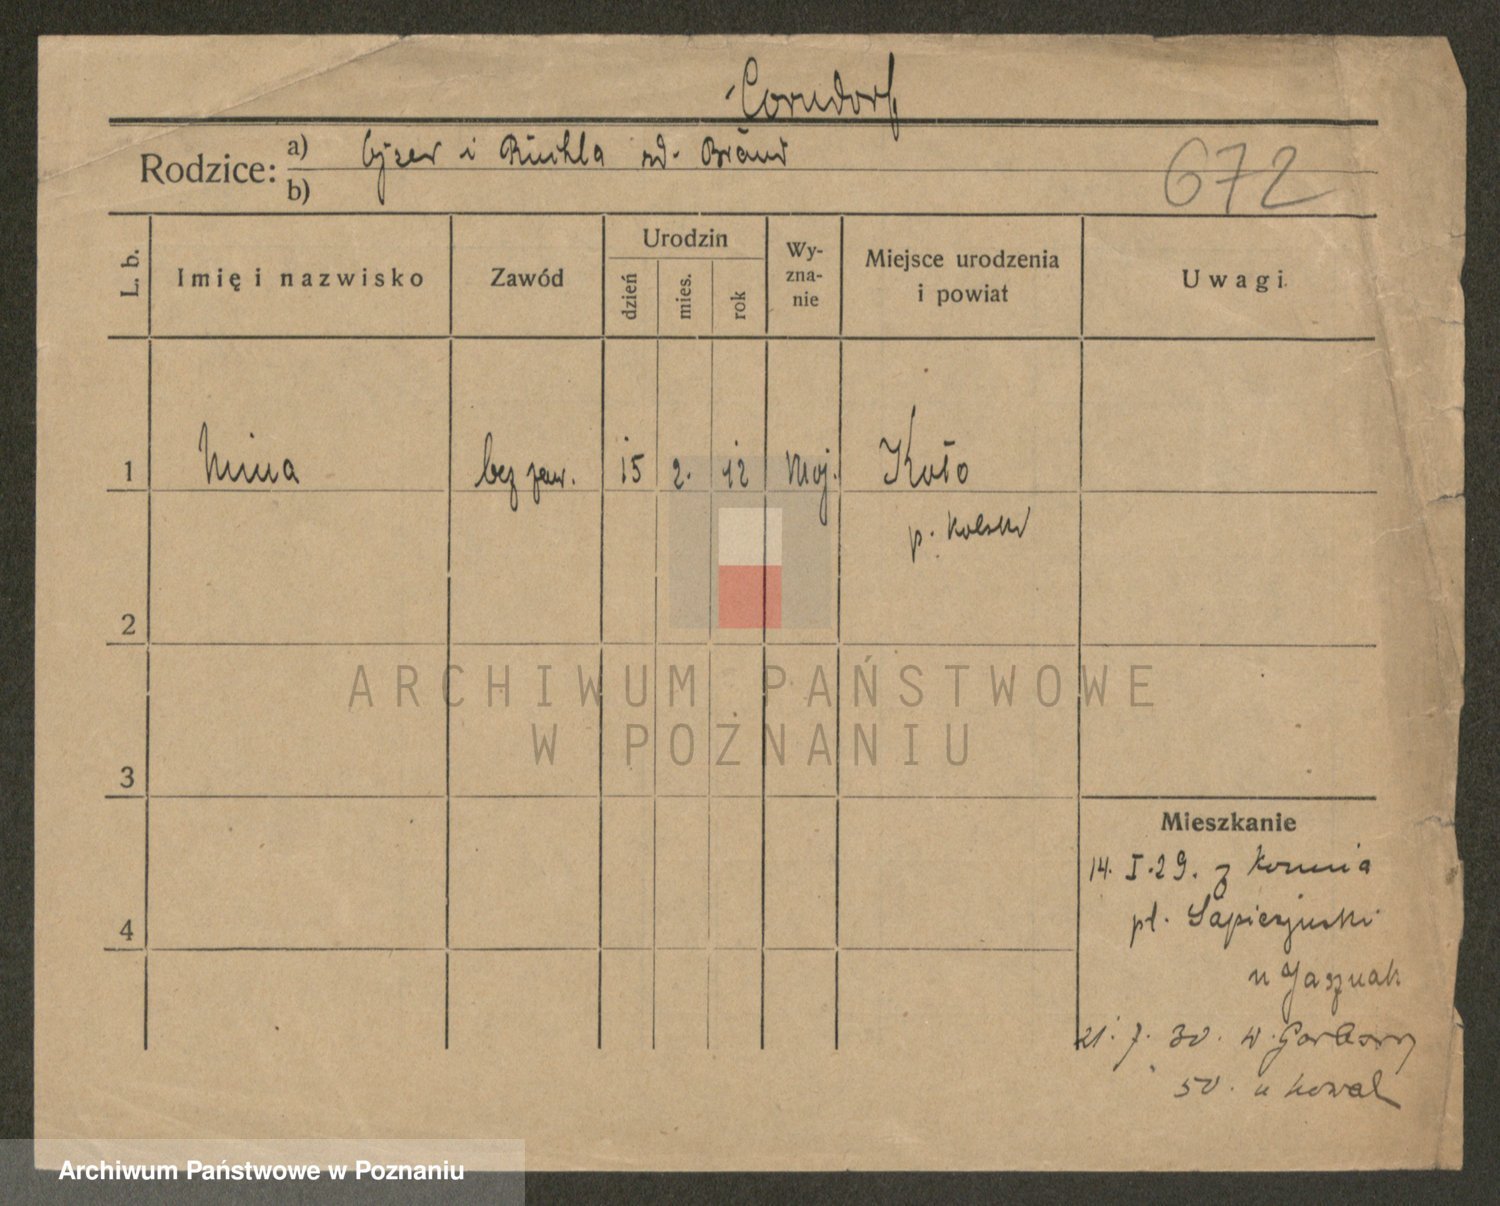 Corndorf
Rodzice: a) i Ruchla zd. Bräun
b)
672
L. b.
Imię i nazwisko
Zawód
Urodzin
dzień
mies.
rok
Wy-
zna-
nie
Miejsce urodzenia
i powiat
Uwagi
1 bez zaw. 15 2. 12 Moj. Koło
p. Kolski
2
3
4
Mieszkanie
14. I. 29. z
pl. Sapieżyński
u
21. 7. 30. w. Garbary
50. u Kowal
ARCHIWUM PAŃSTWOWE
W POZNANIU
Archiwum Państwowe w Poznaniu